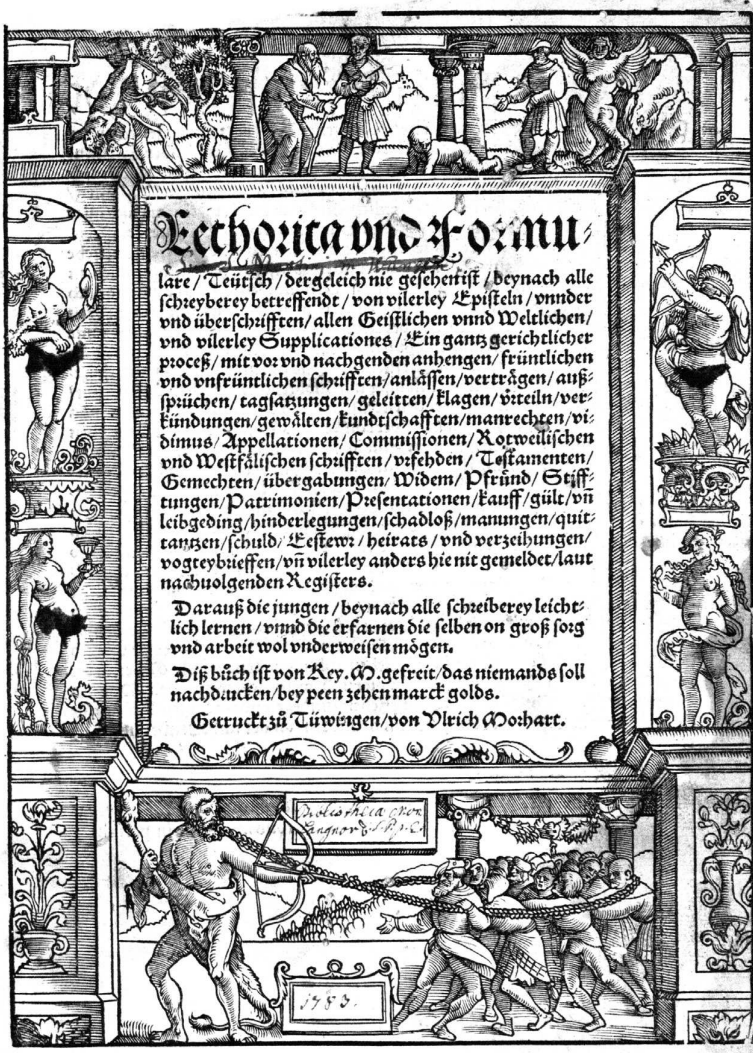 Rethorica vnd Formu-
lare/ Teütsch/ dergeleich nie gesehen ist/ beynach alle
schreyberey betreffendt/ von vilerley Episteln/ vnnder
vnd überschrifften/ allen Geistlichen vnnd Weltlichen/
vnd vilerley Supplicationes/ Ein gantz gerichtlicher
proceß/ mit vor vnd nachgenden anhengen/ früntlichen
vnd vnfrüntlichen schrifften/ anlässen/ verträgen/ auß-
sprüchen/ tagsatzungen/ geleitten/ klagen/ vrteiln/ ver-
kündungen/ gewälten/ kundtschafften/ manrechten/ vi-
dimus/ Appellationen/ Commissionen/ Rotweilischen
vnd Westfälischen schrifften/ vrfehden/ Testamenten/
Gemechten/ übergabungen/ Widem/ Pfründ/ Stiff-
tungen/ Patrimonien/ Presentationen/ kauff/ gült/ vn̄
leibgeding/ hinderlegungen/ schadloß/ manungen/ quit-
tantzen/ schuld/ Eestewr/ heirats/ vnd verzeihungen/
vogteybrieffen/ vn̄ vilerley anders hie nit gemeldet/ laut
nachuolgenden Registers.
Darauß die jungen/ beynach alle schreiberey leicht-
lich lernen/ vnnd die erfarnen die selben on groß sorg
vnd arbeit wol vnderweisen mögen.
Diß bůch ist von Key. M. gefreit/ das niemands soll
nachdrucken/ bey peen zehen marck golds.
Getruckt zů Tüwingen/ von Vlrich Morhart.
1783.